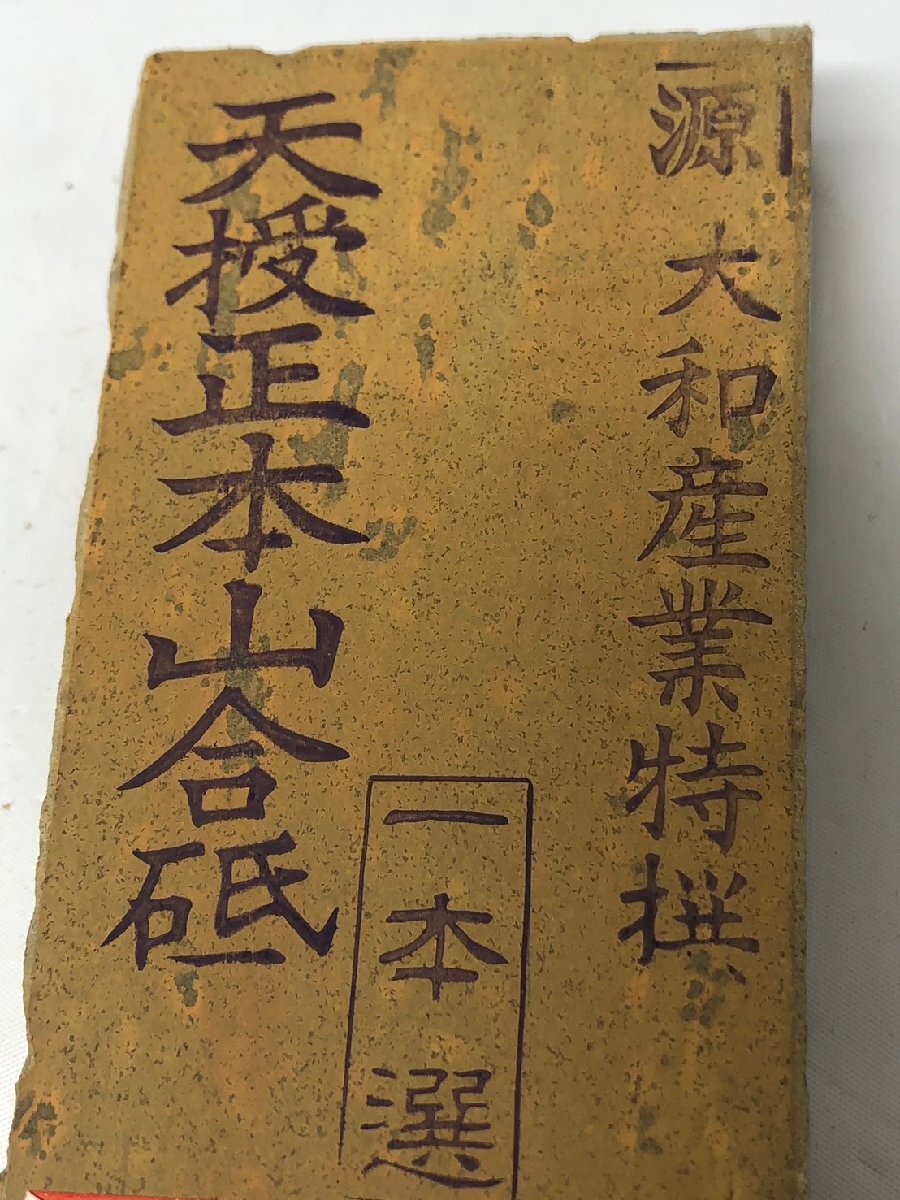 源 大和産業特撰
一本選
天授正本山合砥